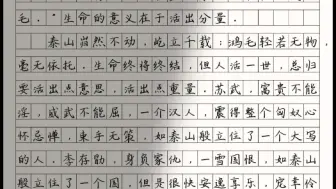 毛。”生命的意义在于活出分量。
泰山岿然不动，屹立千载；鸿毛轻若无物，
毫无依托。生命终将终结，但人活一世，总归
要活出点意思，活出点重量。苏武，富贵不能
淫，威武不能屈，一介汉人，震得整个匈奴心
怀忌惮，束手无策，如泰山般立住了一个大写
的人。李存勖，身负家仇，一雪国恨，如泰山
般立住了一个国，但是很快安逸享乐，宠幸伶